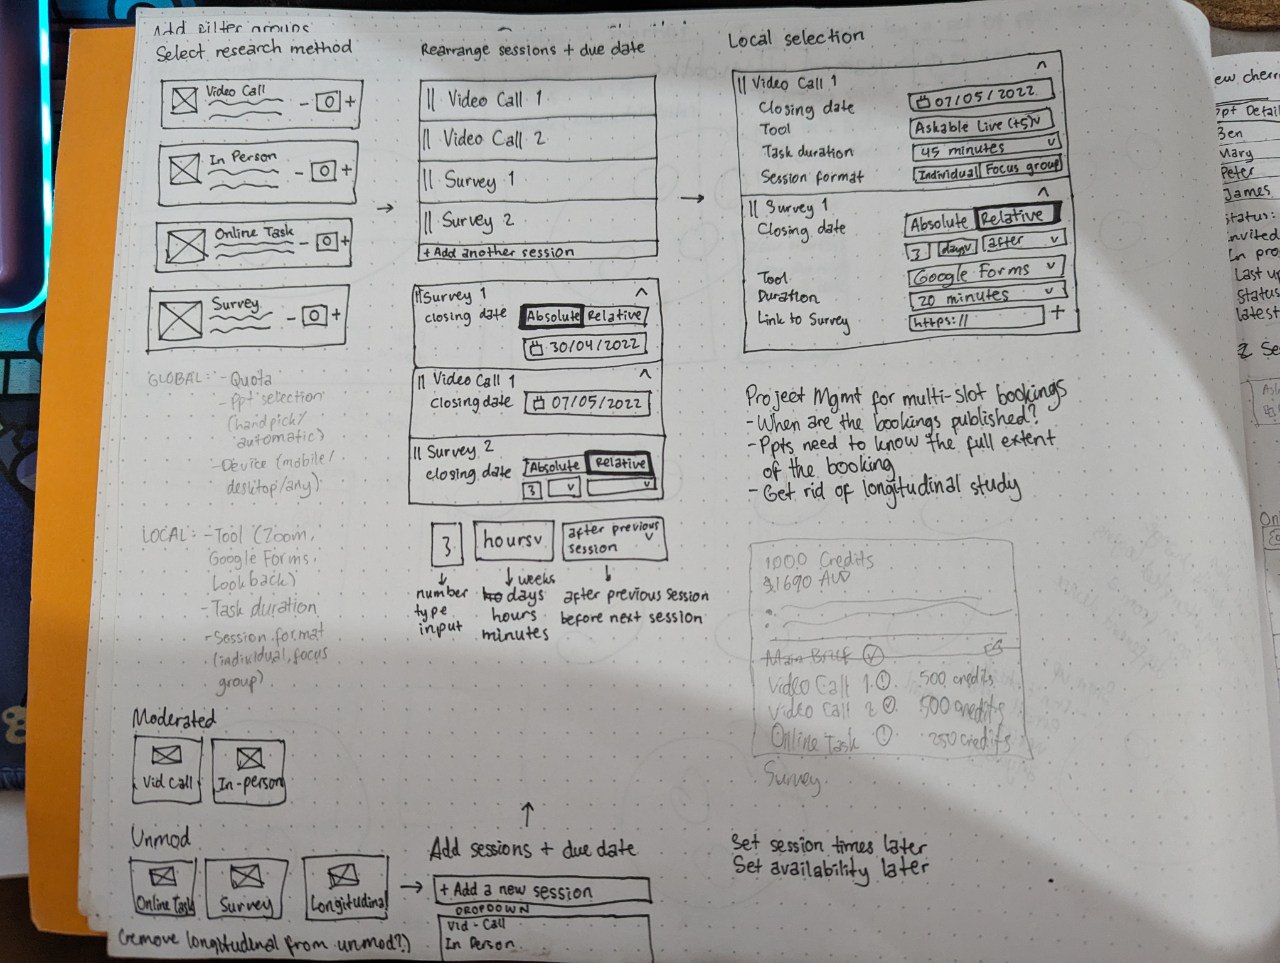 Add filter groups
Select research method
Video Call
- 0 +
In Person
- 0 +
Online Task
- 0 +
Survey
- 0 +
GLOBAL: - Quota
- ppt selection
(handpick/
automatic)
- Device (mobile/
desktop/any)
LOCAL: - Tool (Zoom,
Google Forms,
Lookback)
- Task duration
- Session format
(individual, focus
group)
Moderated
Vid Call
In-person
Unmod
Online Task
Survey
Longitudinal
(remove longitudinal from unmod?)
Rearrange sessions + due date
|| Video Call 1
|| Video Call 2
|| Survey 1
|| Survey 2
+ Add another session
|| Survey 1 ^
closing date Absolute Relative
30/04/2022
|| Video Call 1 ^
closing date 07/05/2022
|| Survey 2
closing date Absolute Relative
3 v v
3 hours v after previous session v
number type input
weeks
days
hours
minutes
after previous session
before next session
Add sessions + due date
+ Add a new session
DROPDOWN
Vid-Call
In Person
Local selection
|| Video Call 1 ^
Closing date 07/05/2022
Tool Askable Live (+5) v
Task duration 45 minutes v
Session format Individual Focus group
|| Survey 1 ^
Closing date Absolute Relative
3 days v after v
Tool Google Forms v
Duration 20 minutes v
Link to Survey https:// +
Project Mgmt for multi-slot bookings
- When are the bookings published?
- Ppts need to know the full extent
of the booking
- Get rid of longitudinal study
1000 Credits
$1690 AUD
Main Brief
Video Call 1 500 credits
Video Call 2 500 credits
Online Task 250 credits
Survey
Set session times later
Set availability later
Ben
Mary
Peter
James
Status: